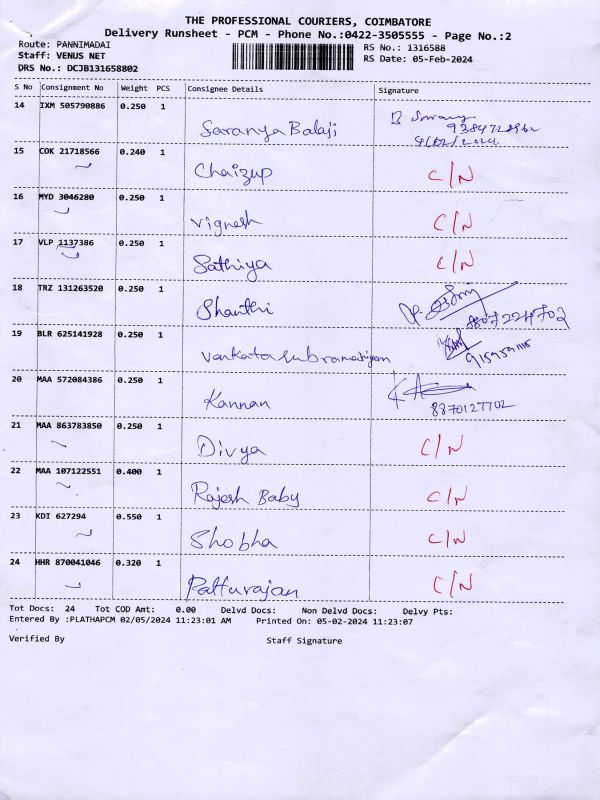 THE PROFESSIONAL COURIERS, COIMBATORE
Delivery Runsheet - PCM - Phone No.:0422-3505555 - Page No.:2
Route: PANNIMADAI RS No.: 1316588
Staff: VENUS NET RS Date: 05-Feb-2024
DRS No.: DCJB131658802
S No Consignment No Weight PCS Consignee Details Signature
14 IXM 505790886 0.250 1
Saranya Balaji
15 COK 21718566 0.240 1
Chaizup C/N
16 MYD 3046280 0.250 1
Vignesh C/N
17 VLP 1137386 0.250 1
Sathiya C/N
18 TRZ 131263520 0.250 1
Shanthi
19 BLR 625141928 0.250 1
Venkatasubramaniyam
20 MAA 572084386 0.250 1
Kannan
8870127702
21 MAA 863783850 0.250 1
Divya C/N
22 MAA 107122551 0.400 1
Rajesh Baby C/N
23 KDI 627294 0.550 1
Shobha C/N
24 HHR 870041046 0.320 1
Patturajan C/N
Tot Docs: 24 Tot COD Amt: 0.00 Delvd Docs: Non Delvd Docs: Delvy Pts:
Entered By :PLATHAPCM 02/05/2024 11:23:01 AM Printed On: 05-02-2024 11:23:07
Verified By Staff Signature